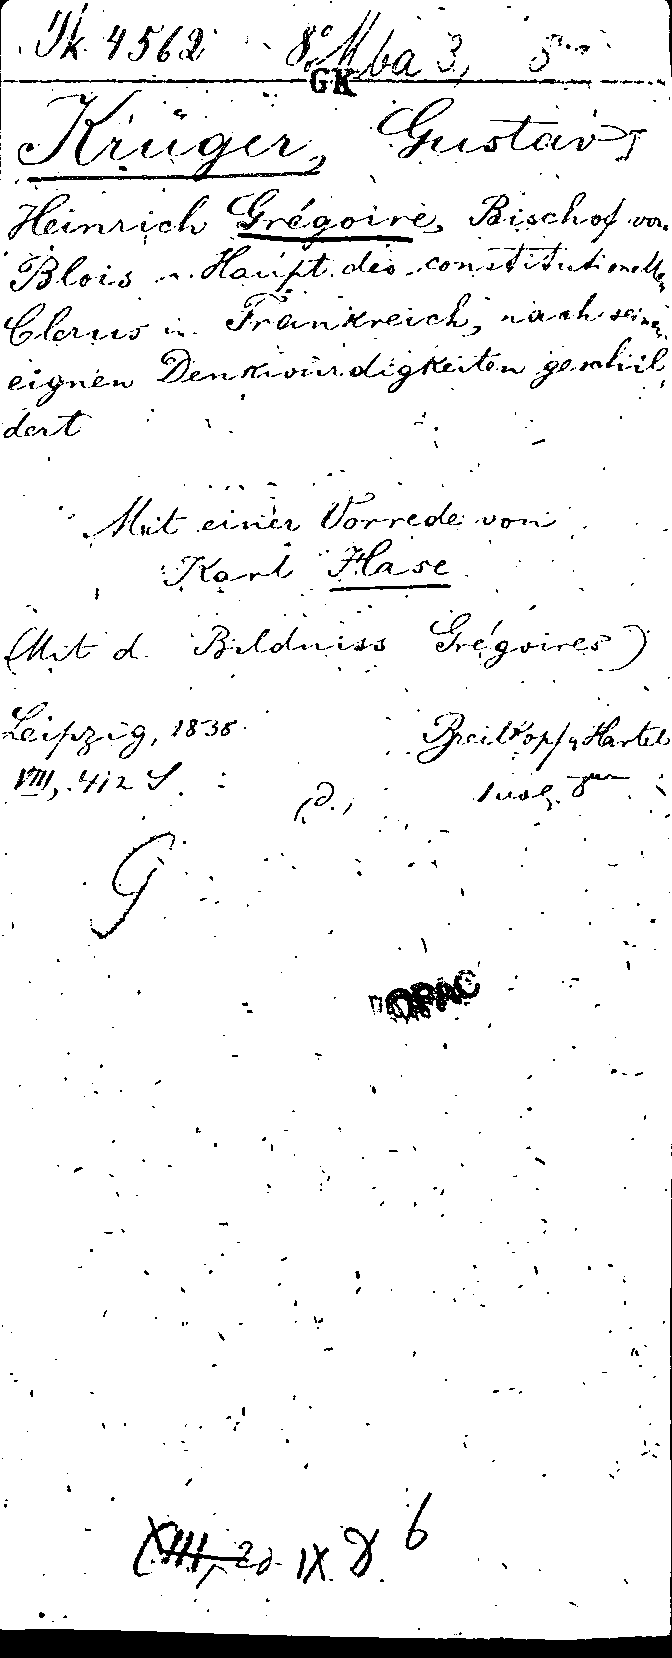 4562 8° Mba 3,
GK
Krüger, Gustav,
Heinrich Grégoire, Bischof von
Blois u. Haupt des constitutionellen
Clerus in Frankreich, nach seinen
eignen Denkwürdigkeiten geschil
dert
Mit einer Vorrede von
Karl Hase
(Mit d. Bildniss Grégoires)
Leipzig, 1838 Breitkopf u Hartel
VIII, 412 S.
G
OPAC
IX 6